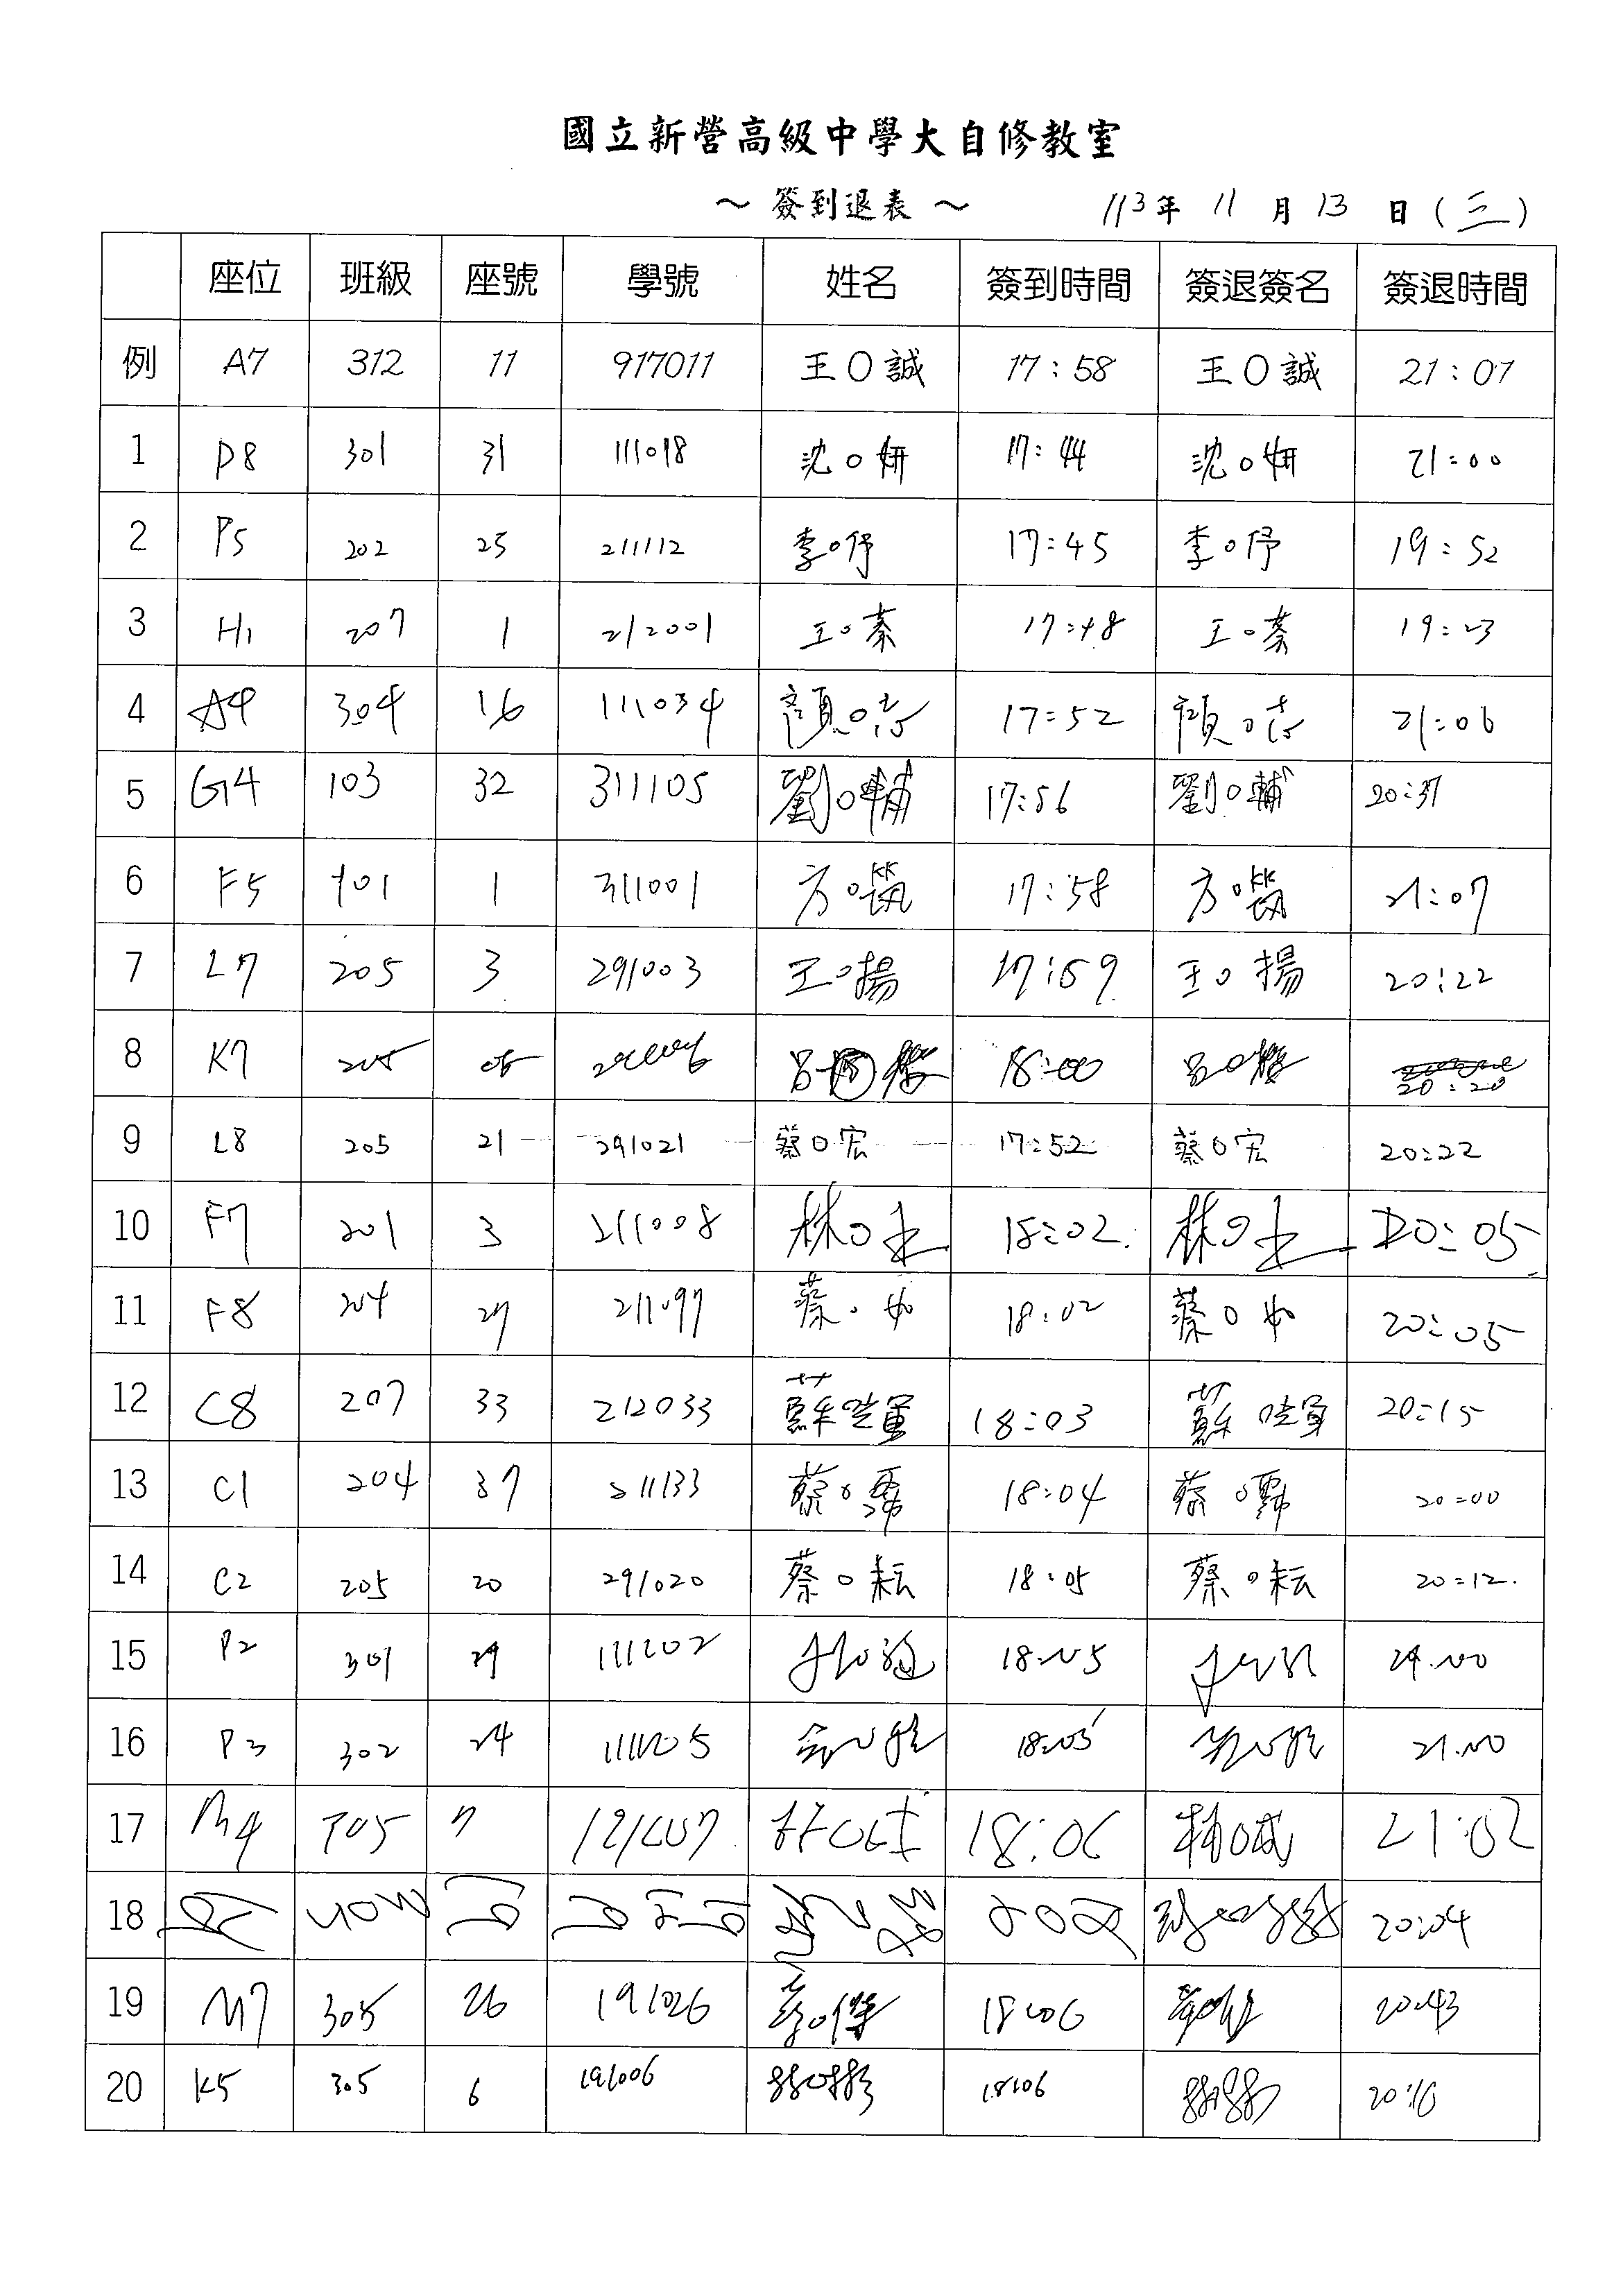 國立新營高級中學大自修教室
～ 簽到退表 ～ 113年 11 月 13 日(三)
座位 班級 座號 學號 姓名 簽到時間 簽退簽名 簽退時間
例 A7 312 11 917011 王O誠 17:58 王O誠 21:07
1 P8 301 31 111098 沈O妍 17:44 沈O妍 21:00
2 P5 202 25 211112 李O伃 17:45 李O伃 19:52
3 H1 207 1 212001 王O蓁 17:48 王O蓁 19:23
4 A9 304 16 111034 顏O 17:52 顏O 21:06
5 G4 103 32 311105 劉O輔 17:56 劉O輔 20:37
6 F5 101 1 311001 方O 17:58 方O 21:07
7 L7 205 3 291003 王O揚 17:59 王O揚 20:22
8 K7 205 05 呂O 18:00 呂O 20:20
9 L8 205 21 291021 蔡O宏 17:52 蔡O宏 20:22
10 F7 201 3 211008 林O 18:02 林O 20:05
11 F8 204 27 211097 蔡O 18:02 蔡O 20:05
12 C8 207 33 212033 蘇 18:03 蘇 20:15
13 C1 204 37 211133 蔡O 18:04 蔡O 20:00
14 C2 205 20 291020 蔡O耘 18:05 蔡O耘 20:12
15 P2 301 29 111202 18:05
16 P3 302 24 18:05 21:00
17 M4 305 7 191007 18:06 21:02
18 20:04
19 M7 305 26 191026 18:06 20:43
20 K5 305 6 191006 18:06 20:10